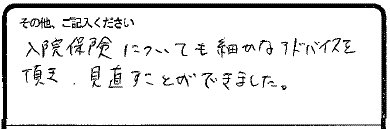 その他、ご記入ください
入院保険についても細かなアドバイスを
頂き、見直すことができました。